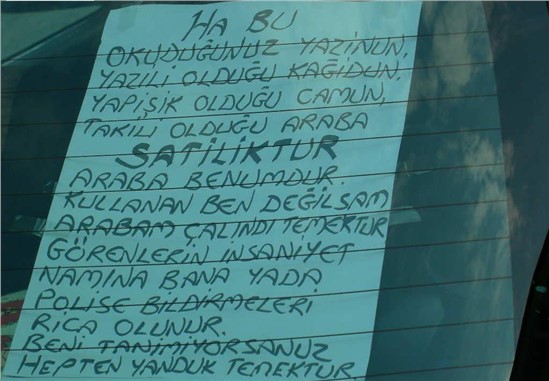 HA BU
OKUDUĞUNUZ YAZİNUN,
YAZILI OLDUĞU KAĞIDUN,
YAPIŞIK OLDUĞU CAMUN,
TAKILI OLDUĞU ARABA
SATILIKTUR
ARABA BENUMDUR.
KULLANAN BEN DEĞİLSAM
ARABAM ÇALINDI TEMEKTUR
GÖRENLERİN İNSANİYET
NAMINA BANA YADA
POLİSE BİLDİRMELERİ
RİCA OLUNUR.
BENİ TANIMIYORSANUZ
HEPTEN YANDUK TEMEKTUR.